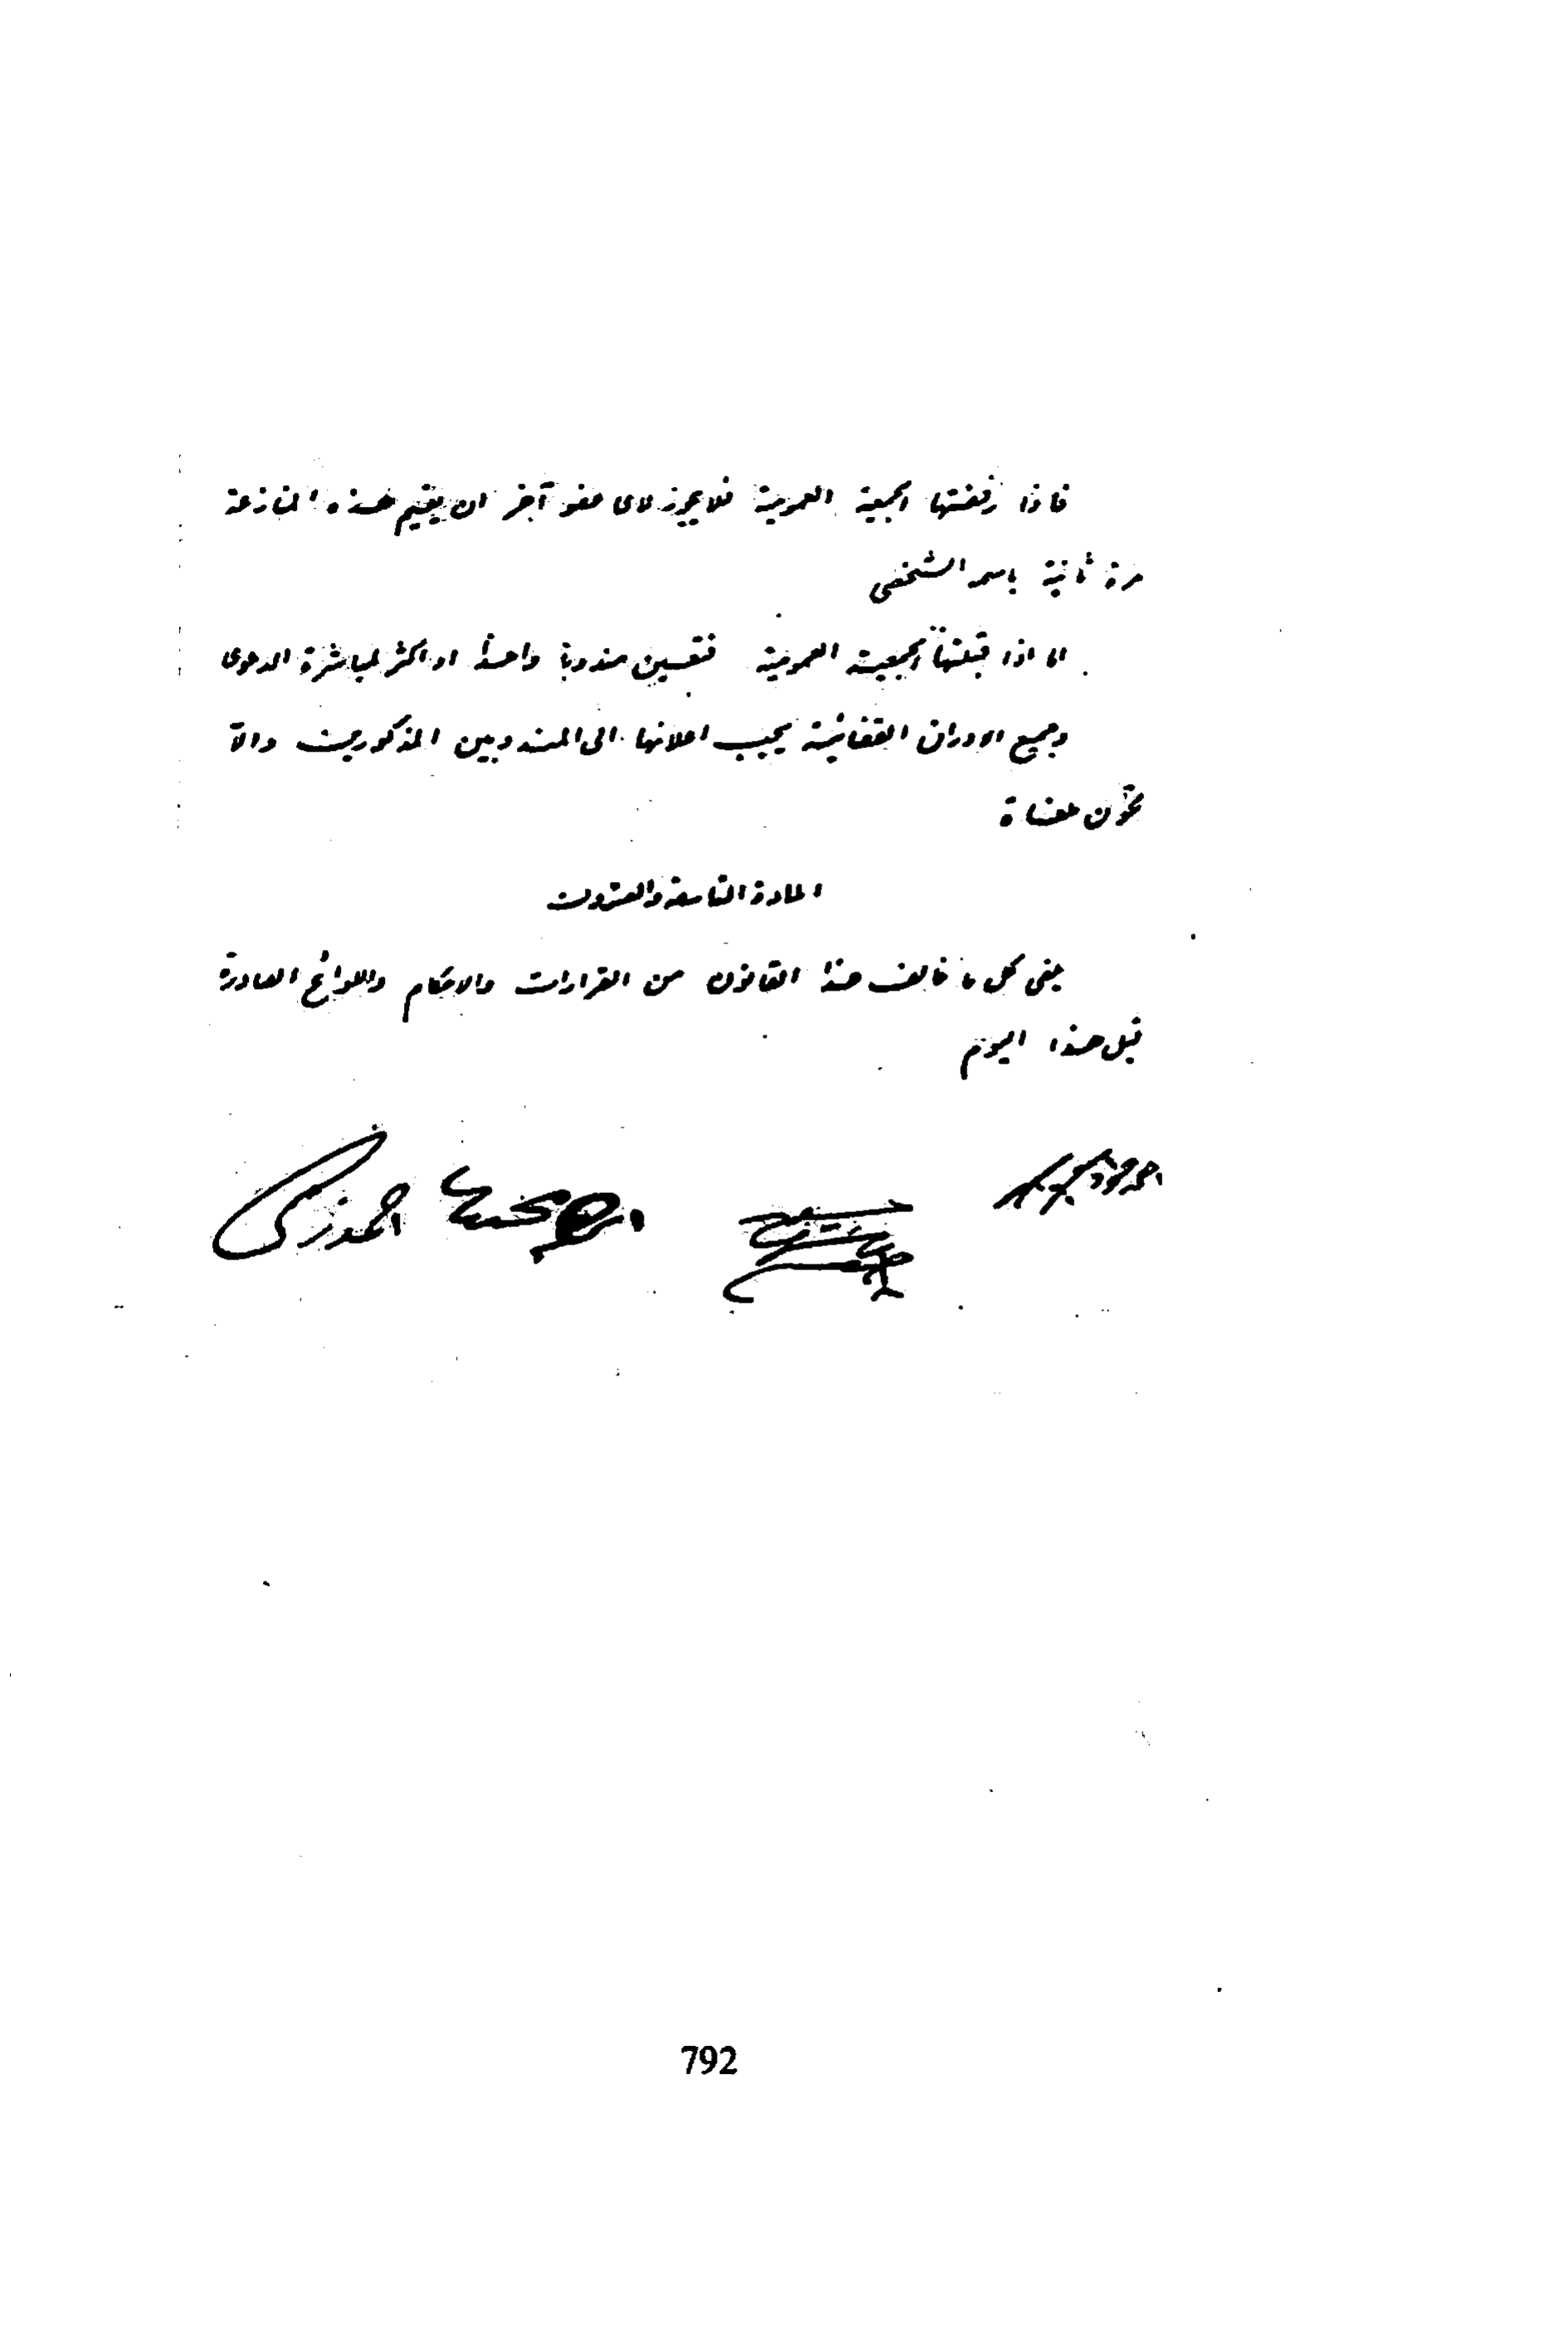 فاذا رفضتها الجمعية العمومية فلا يجوز لاى عضو آخر ان يقيم هذه المنازعة
مرة ثانية باسمه الشخصى
اما اذا قبلتها الجمعية العمومية فتعين مندوبا واحدا او اكثر لمباشرة الدعوى
وجميع الاوراق القضائية يجب اعلانها الى المندوبين المذكورين والا
تكون ملغاة
المادة التاسعة والعشرون
يلغى كل ما خالف هذا القانون من القرارات والاحكام واللوائح الصادرة
قبل هذا اليوم
احمد زكى
792